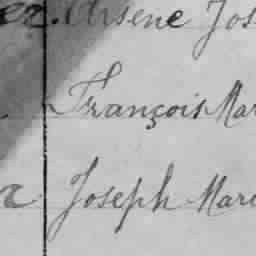 ez. Arsene Jos
François Mar
a Joseph Mari